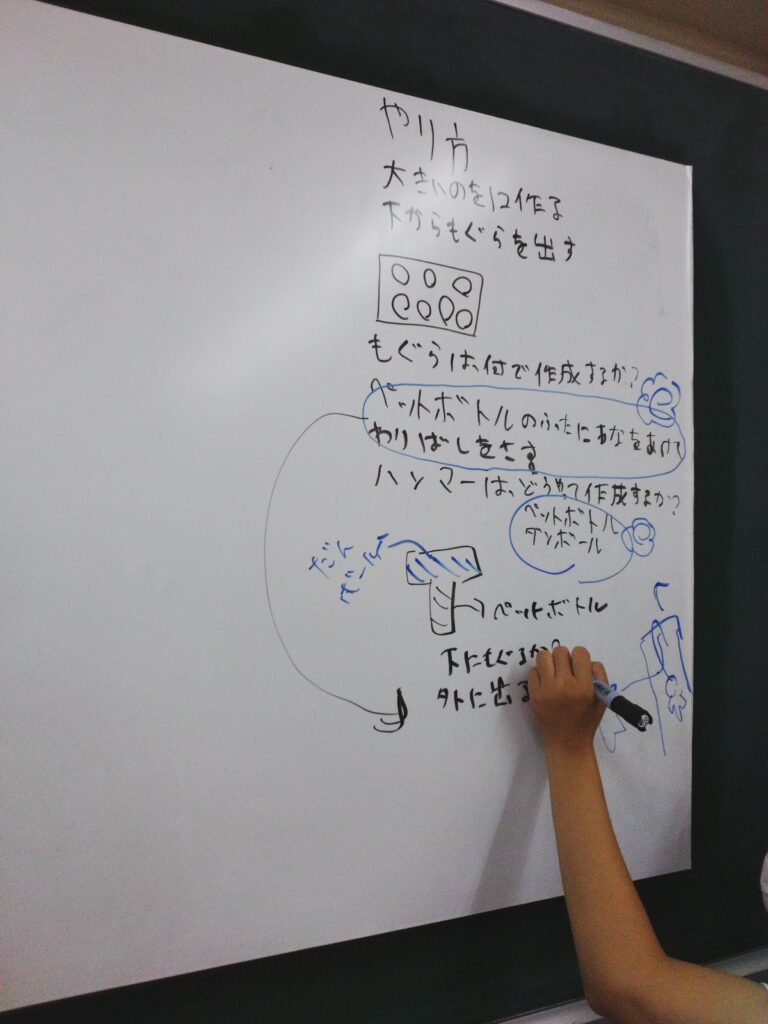 やり方
大きいのを12作る
下からもぐらを出す
もぐらは、付で作成するか?
ペットボトルのふたにあなをあけて
わりばしをさす
ハンマーは、どうやって作成するか?
ペットボトル
ダンボール
だん
ぼーる
ペットボトル
下にもぐるか
外に出る